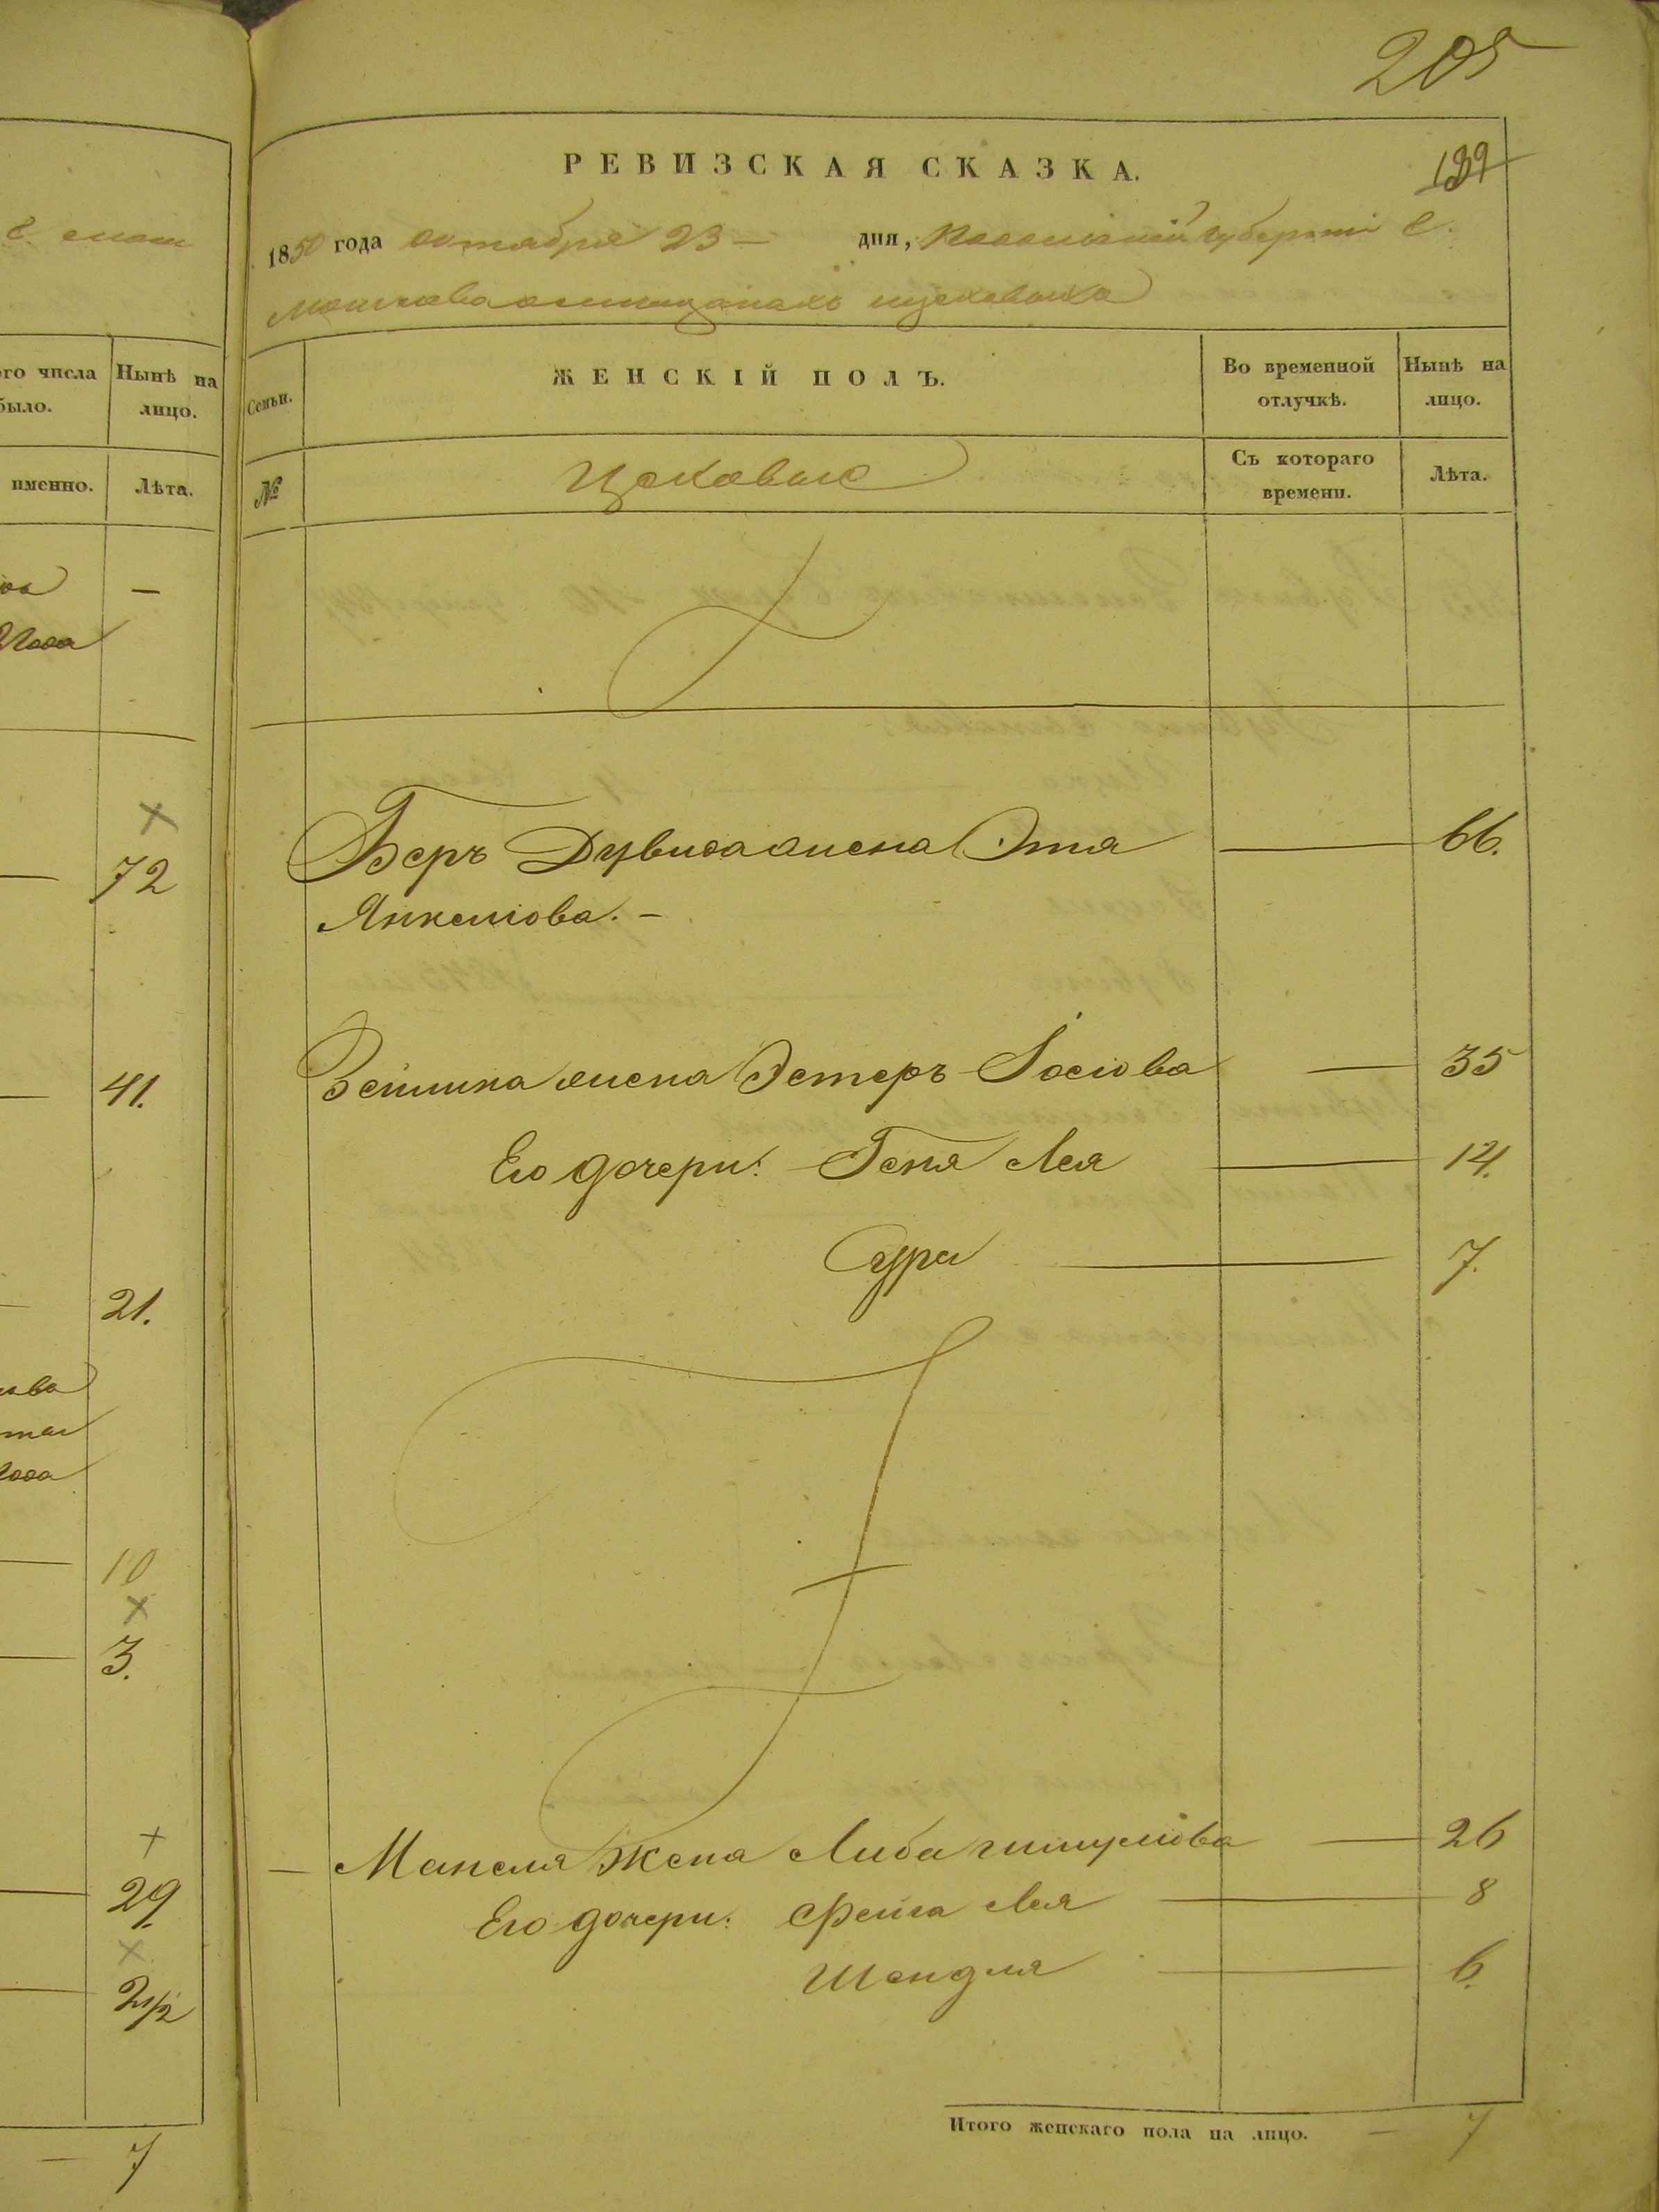 205
РЕВИЗСКАЯ СКАЗКА.
139
1850 года октября 23 — дня, губерніи С.
с.
ого числа
было.
Нынѣ на
лицо.
Семьи.
ЖЕНСКІЙ ПОЛЪ.
Во временной
отлучкѣ.
Нынѣ на
лицо.
именно.
Лѣта.
№
Съ котораго
времени.
Лѣта.
—
года
— 72
Беръ Дувида жена Эта — 66.
Янкеліова. —
— 41.
Зейлика жена Эстеръ Іосіова — 35
Его дочери: Геня Лея — 14.
Сура — 7.
— 21.
года
— 10
— 3.
— 29.
— Манеля Жена Либа — 26
Его дочери: Фейга Лея — 8
— 2 1/2
Шендля — 6.
Итого женскаго пола на лицо. — 7
— 7